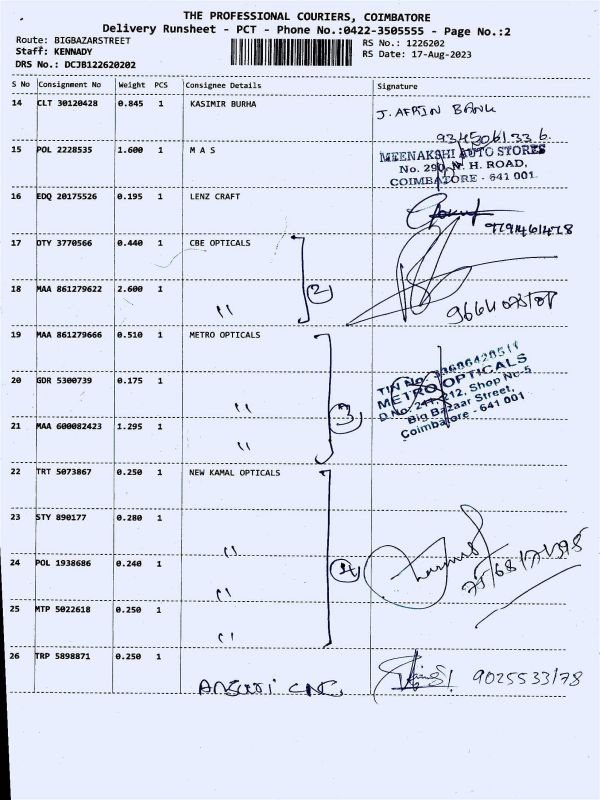 THE PROFESSIONAL COURIERS, COIMBATORE
Delivery Runsheet - PCT - Phone No.:0422-3505555 - Page No.:2
Route: BIGBAZARSTREET RS No.: 1226202
Staff: KENNADY RS Date: 17-Aug-2023
DRS No.: DCJB122620202
S No Consignment No Weight PCS Consignee Details Signature
14 CLT 30120428 0.845 1 KASIMIR BURHA J. AFRIN BANK
15 POL 2228535 1.600 1 M A S
MEENAKSHI AUTO STORES
No. 290, N. H. ROAD,
COIMBATORE - 641 001
16 EDQ 20175526 0.195 1 LENZ CRAFT
17 OTY 3770566 0.440 1 CBE OPTICALS
18 MAA 861279622 2.600 1 " 2
19 MAA 861279666 0.510 1 METRO OPTICALS
20 GDR 5300739 0.175 1 "
21 MAA 600082423 1.295 1 " 3
METRO OPTICALS
D.No: 211, 212, Shop No-5
Big Bazaar Street,
Coimbatore - 641 001
22 TRT 5073867 0.250 1 NEW KAMAL OPTICALS
23 STY 890177 0.280 1 "
24 POL 1938686 0.240 1 " 4
25 MTP 5022618 0.250 1 "
26 TRP 5898871 0.250 1